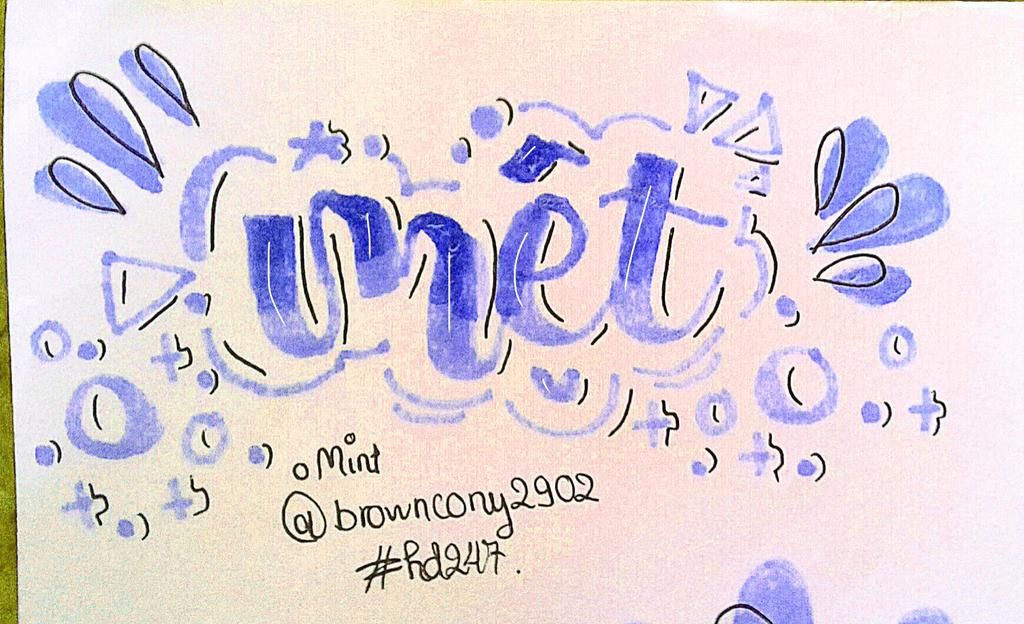 mệt
o Mint
@browncony2902
#hd247.